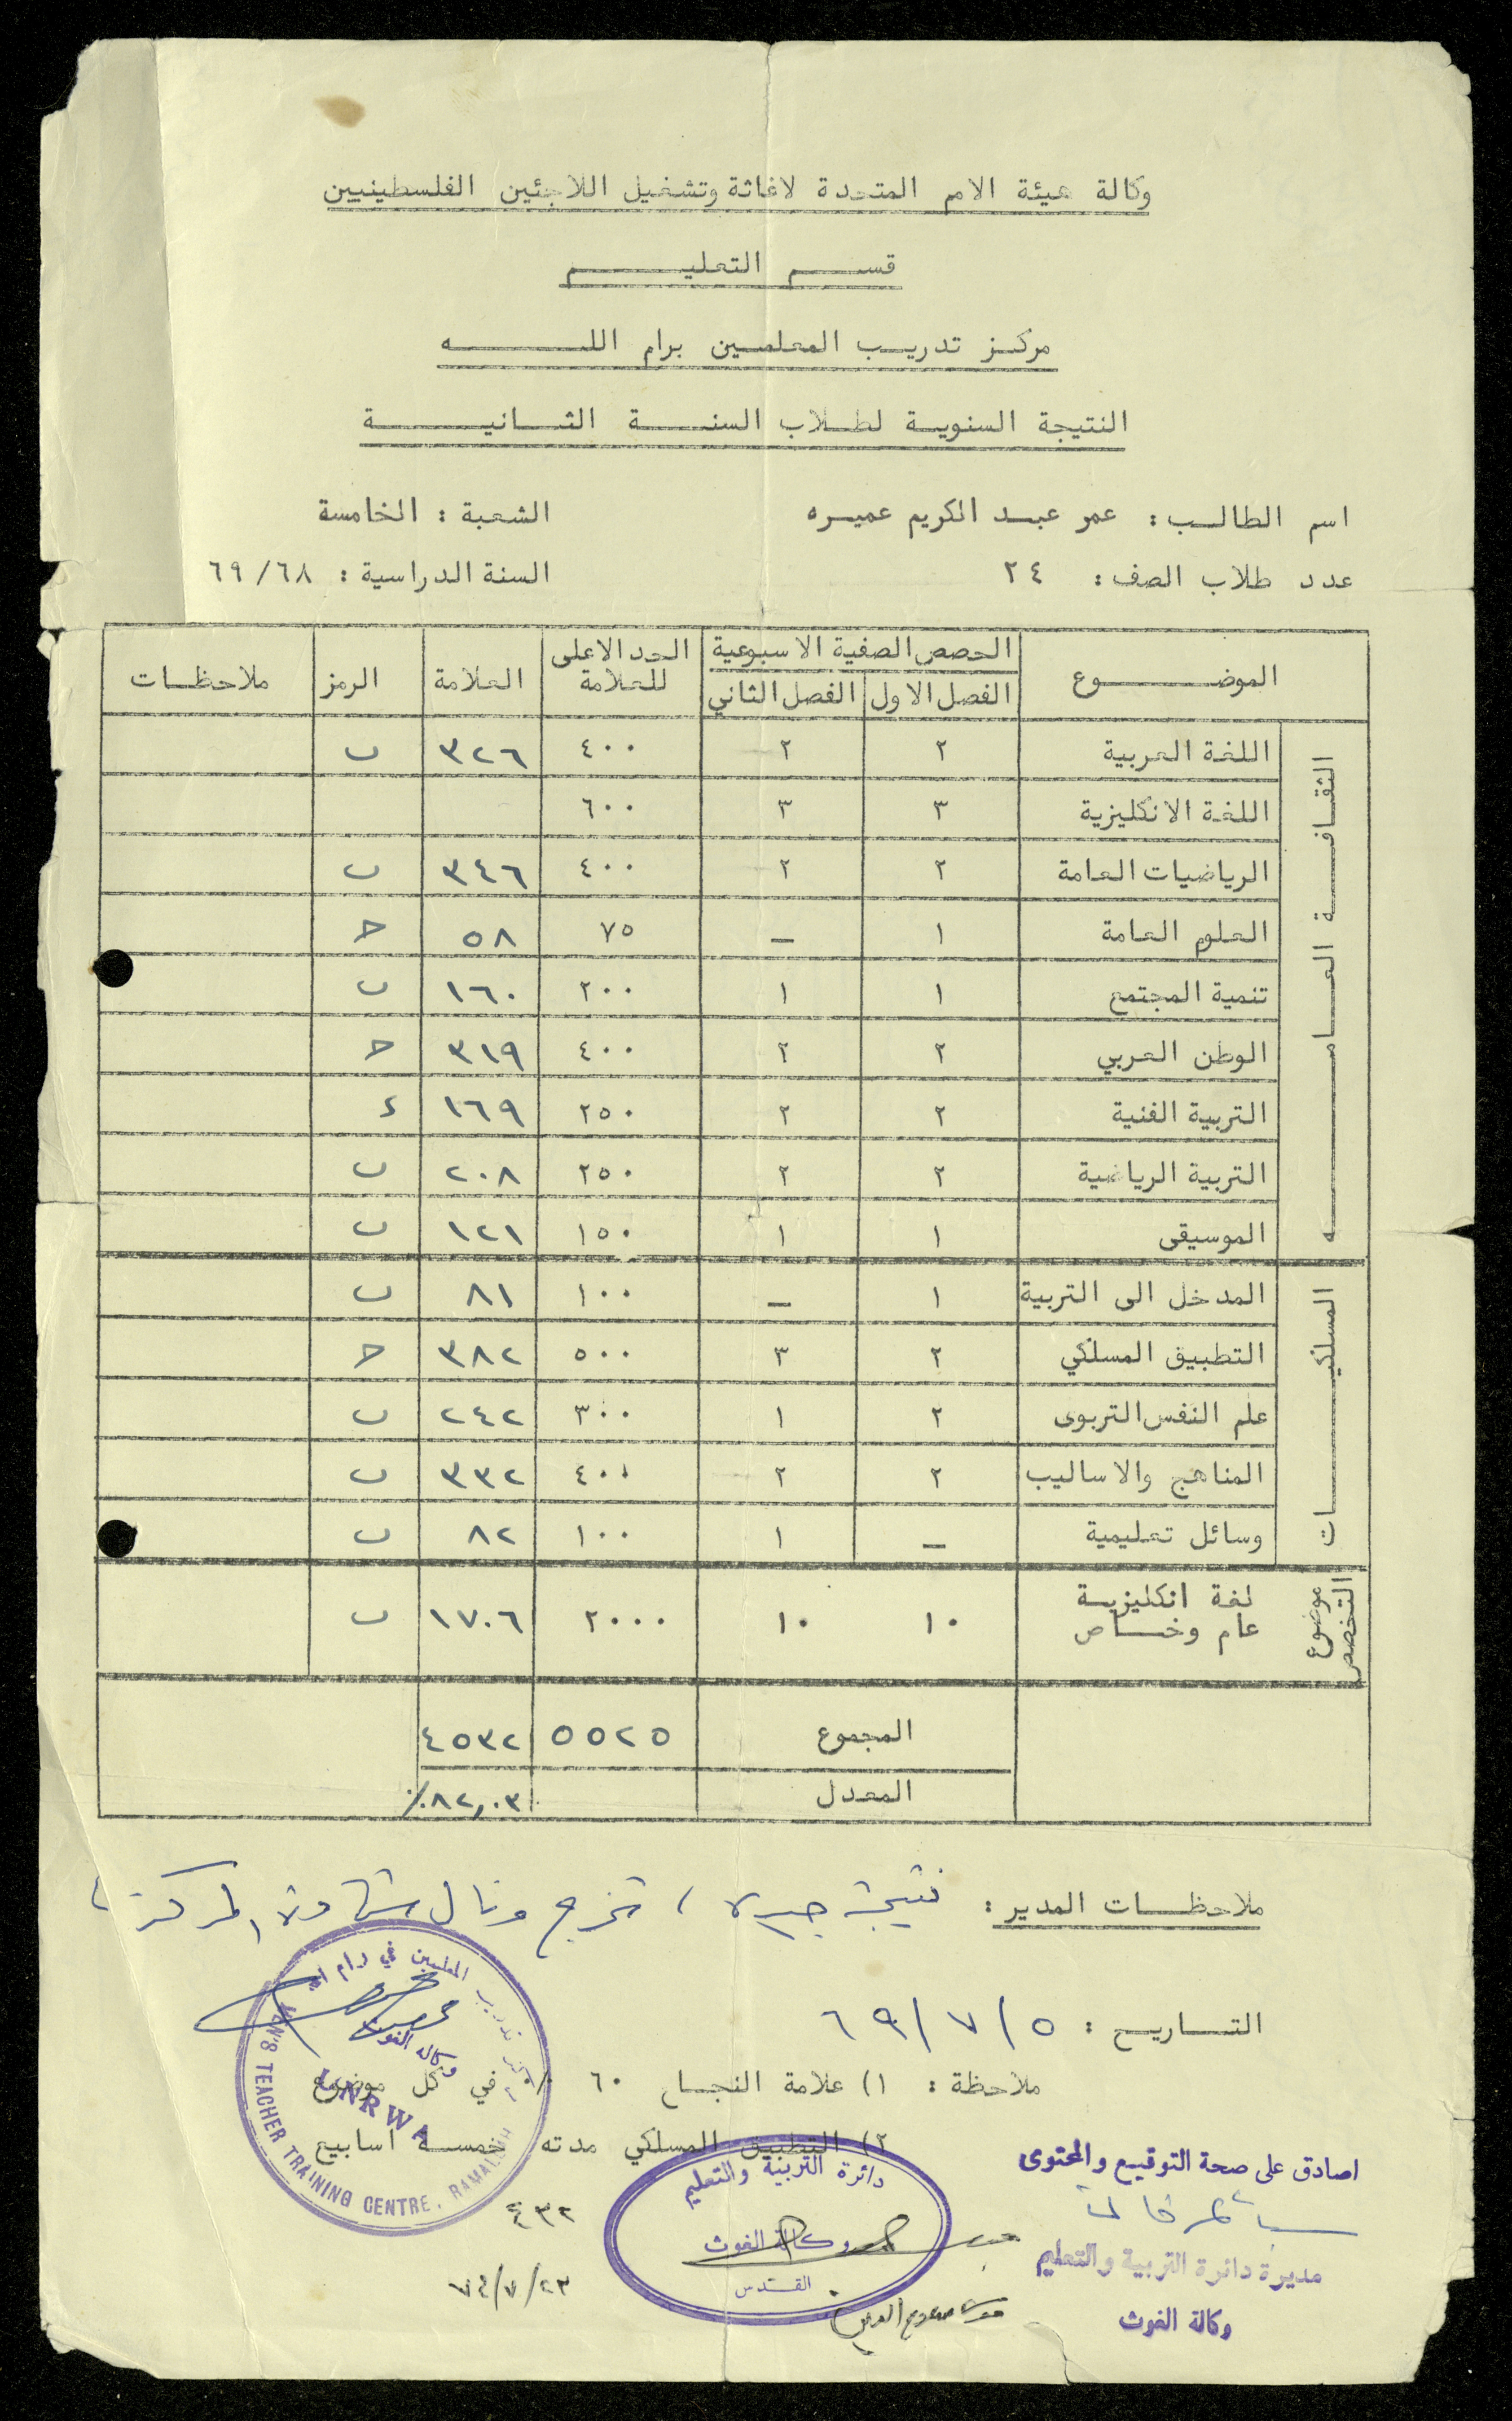 وكالة هيئة الامم المتحدة لاغاثة وتشغيل اللاجئين الفلسطينيين
قسم التعليم
مركز تدريب المعلمين برام الله
النتيجة السنوية لطلاب السنة الثانية
اسم الطالب : عمر عبد الكريم عميره الشعبة : الخامسة
عدد طلاب الصف : ٢٤ السنة الدراسية : ٦٨/٦٩
الموضوع الحصص الصفية الاسبوعية الحد الاعلى للعلامة العلامة الرمز ملاحظات
الفصل الاول الفصل الثاني
الثقافة العامه
اللغة العربية ٢ ٢ ٤٠٠ ٣٢٦ ب
اللغة الانكليزية ٣ ٣ ٦٠٠
الرياضيات العامة ٢ ٢ ٤٠٠ ٣٤٦ ب
العلوم العامة ١ – ٧٥ ٥٨ ح
تنمية المجتمع ١ ١ ٢٠٠ ١٦٠ ب
الوطن العربي ٢ ٢ ٤٠٠ ٣١٩ ح
التربية الفنية ٢ ٢ ٢٥٠ ١٦٩ د
التربية الرياضية ٢ ٢ ٢٥٠ ٢٠٨ ب
الموسيقى ١ ١ ١٥٠ ١٢١ ب
المسلكيات
المدخل الى التربية ١ – ١٠٠ ٨١ ب
التطبيق المسلكي ٢ ٣ ٥٠٠ ٣٨٢ ح
علم النفس التربوى ٢ ١ ٣٠٠ ٢٤٢ ب
المناهج والاساليب ٢ ٢ ٤٠٠ ٣٣٢ ب
وسائل تعليمية – ١ ١٠٠ ٨٢ ب
موضوع التخصص
لغة انكليزية عام وخاص ١٠ ١٠ ٢٠٠٠ ١٧٠٦ ب
المجموع ٥٥٢٥ ٤٥٣٢
المعدل ٨٢,٠٣٪
ملاحظات المدير : نتيجة جيدة ، تخرج ونال شهادة المركز
التاريخ : ٥/٧/٦٩
ملاحظة : ١) علامة النجاح ٦٠ ٪ في كل موضوع
٢) التطبيق المسلكي مدته خمسة اسابيع
مركز تدريب المعلمين في رام الله
وكالة الغوث
UNRWA
MEN'S TEACHER TRAINING CENTRE, RAMALLAH
دائرة التربية والتعليم
وكالة الغوث
القدس
اصادق على صحة التوقيع والمحتوى
مديرة دائرة التربية والتعليم
وكالة الغوث
٤٣٢
٢٣/٧/٧٤